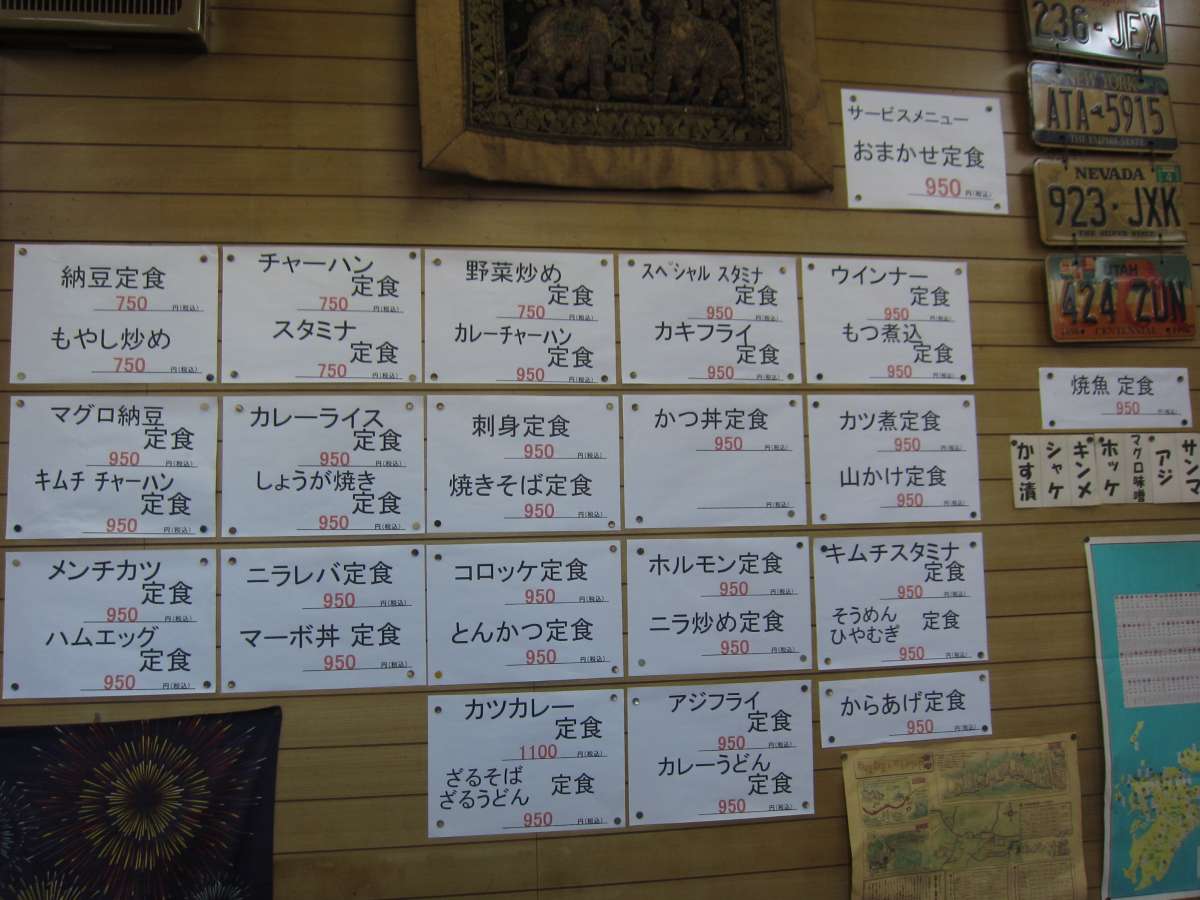 236·JEX
NEW YORK
ATA 5915
THE EMPIRE STATE
NEVADA
923·JXK
THE SILVER STATE
UTAH
424 ZUN
CENTENNIAL
サービスメニュー
おまかせ定食
950 円(税込)
納豆定食
750 円(税込)
もやし炒め
750 円(税込)
チャーハン
定食
750 円(税込)
スタミナ
定食
750 円(税込)
野菜炒め
定食
750 円(税込)
カレーチャーハン
定食
950 円(税込)
スペシャル スタミナ
定食
950 円(税込)
カキフライ
定食
950 円(税込)
ウインナー
定食
950 円(税込)
もつ煮込
定食
950 円(税込)
マグロ納豆
定食
950 円(税込)
キムチ チャーハン
定食
950 円(税込)
カレーライス
定食
950 円(税込)
しょうが焼き
定食
950 円(税込)
刺身定食
950 円(税込)
焼きそば定食
950 円(税込)
かつ丼定食
950 円(税込)
円(税込)
カツ煮定食
950 円(税込)
山かけ定食
950 円(税込)
焼魚 定食
950 円(税込)
サンマ
アジ
マグロ味噌
ホッケ
キンメ
シャケ
かす漬
メンチカツ
定食
950 円(税込)
ハムエッグ
定食
950 円(税込)
ニラレバ定食
950 円(税込)
マーボ丼 定食
950 円(税込)
コロッケ定食
950 円(税込)
とんかつ定食
950 円(税込)
ホルモン定食
950 円(税込)
ニラ炒め定食
950 円(税込)
キムチスタミナ
定食
950 円(税込)
そうめん
ひやむぎ 定食
950 円(税込)
カツカレー
定食
1100 円(税込)
ざるそば
ざるうどん 定食
950 円(税込)
アジフライ
定食
950 円(税込)
カレーうどん
定食
950 円(税込)
からあげ定食
950 円(税込)